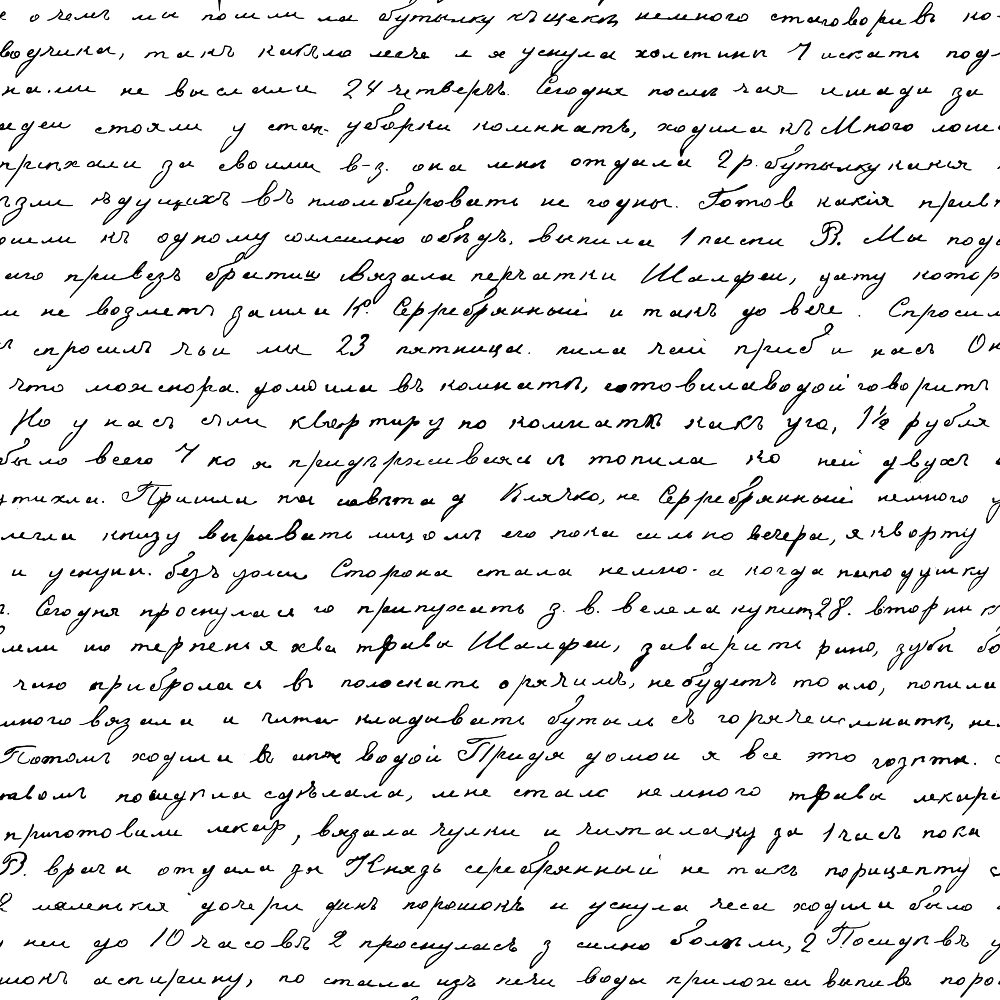 о чемъ мы пошли ла бутылку къщекѣ немного стаговоривъ но
водчика, такъ какъло лече и я уснула холстины 7 искать под
на.ми не выслали 24 четвергъ. Сегодня послы чая ишади за
адеи стояли у стол. уборки комнкатъ, ходила къ Много лош
приѣхали за своими в-з. она мны отдала 2 р. бутылку какия
ъзли ѣдущихъ въ пломбировать не годны. Готов какія привѣ
ошли къ одному согласилно обѣдъ. выпила 1 пасти В. Мы подо
его привезъ братиш вязала перчатки Шалфеи, дату котор
и не возметъ зашли К. Серребрянный и такъ до вече . Спросил
спросилъ чьи мы 23 пятница. пила чай приб и насъ Он
что можскора. домоила въ комнаты, готовилаводой говоритъ
Но у насъ съли квартиру по комнатѣ какъ уго, 1½ рубля
было всего 7 ко я придерживаясь и топила ко ней двухъ
утихла. Пришли по совѣта д Клячко, не Серребрянный немного
легла книзу вырывать лицомъ его пока сильно вечера, я кворту
и уснули. безъ доли Сторона стала немно- а когда пиподушку
Сегодня проснулася го припухать з. в. велела купит, 28. вторник
или по терпенья хва трава Шалфеи, заварить рано, зубы бо
чаю прибролася в полоскать орячимъ, не будетъ то ало, попила
много вязала и чита кладывать бутыль съ горячеикмнаты, не
Потомъ ходили в апте водой Придя домои я все это
твомъ посидѣла сдѣлала, мне стало немного трава лекарс
приготовили лекар, вязала чулки и читаланд за 1 часъ пока
В. врача отдала за Князь серебрянный не такъ порицепту
2 маленькія дочери динъ порошокъ и уснула чеса ходили было
ней до 10 часовъ 2 проснулась з силно болѣли, 2 Посидѣвъ у
шокъ аспирину, по стала изъ печи воды приложи выпивъ поро